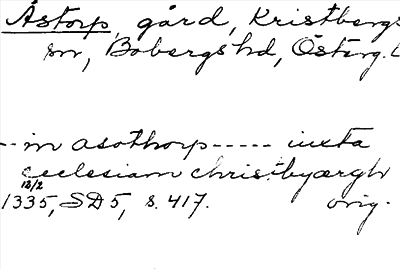 Åstorp, gård, Kristbergs
sn, Bobergs hd, Österg. L
-- in asothorp ----- iuxta
ecclesiam christbyærgh
18/2
1335, SD 5, s. 417. orig.